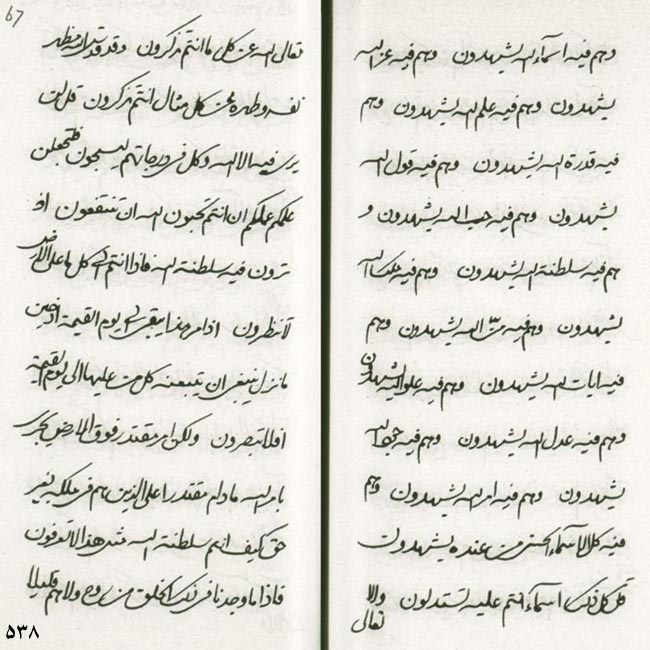 وهم فيه اسمآء الله يشهدون وهم فيه عز الله
يشهدون وهم فيه علم الله يشهدون وهم
فيه قدرة الله يشهدون وهم فيه قول الله
يشهدون وهم فيه حب الله يشهدون و
هم فيه سلطنة الله يشهدون وهم فيه ملك الله
يشهدون وهم فيه منّ الله يشهدون وهم
فيه ايات الله يشهدون وهم فيه علو الله يشهدون
وهم فيه عدل الله يشهدون وهم فيه الله
يشهدون وهم فيه امر الله يشهدون وهم
فيه كل الاسمآء الحسنى من عنده يشهدون
قل كل ذلك اسمآء انتم عليه تستدلون والا
تعالى
67
تعالى الله عن كل ما انتم تذكرون وقد
نفسه وطهره عن كل مثال انتم تذكرون قل لن
يرى فيه الا الله وكل في درجاتهم يسبحون فلتجعلن
علمكم عملكم ان انتم تحبون الله ان تنتفعون اذ
ترون فيه سلطنة الله فاذا انتم الى كل ما على الارض
لا تنظرون اذ امر هذا يبقى الى يوم القيمة اذ حين
ما نزل ينبغي ان يتبعنه كل من عليها الى يوم القيمة
افلا تبصرون ولكن امر مقتدر فوق الارض يجرى
بامر الله مادام مقتدرا على الذين هم في ملكه بغير
حق كيف انتم سلطنة الله مثل هذا لا تعرفون
فاذا ما وجدنا في ذلك الخلق من روح ولا هم قليلا
٥٣٨